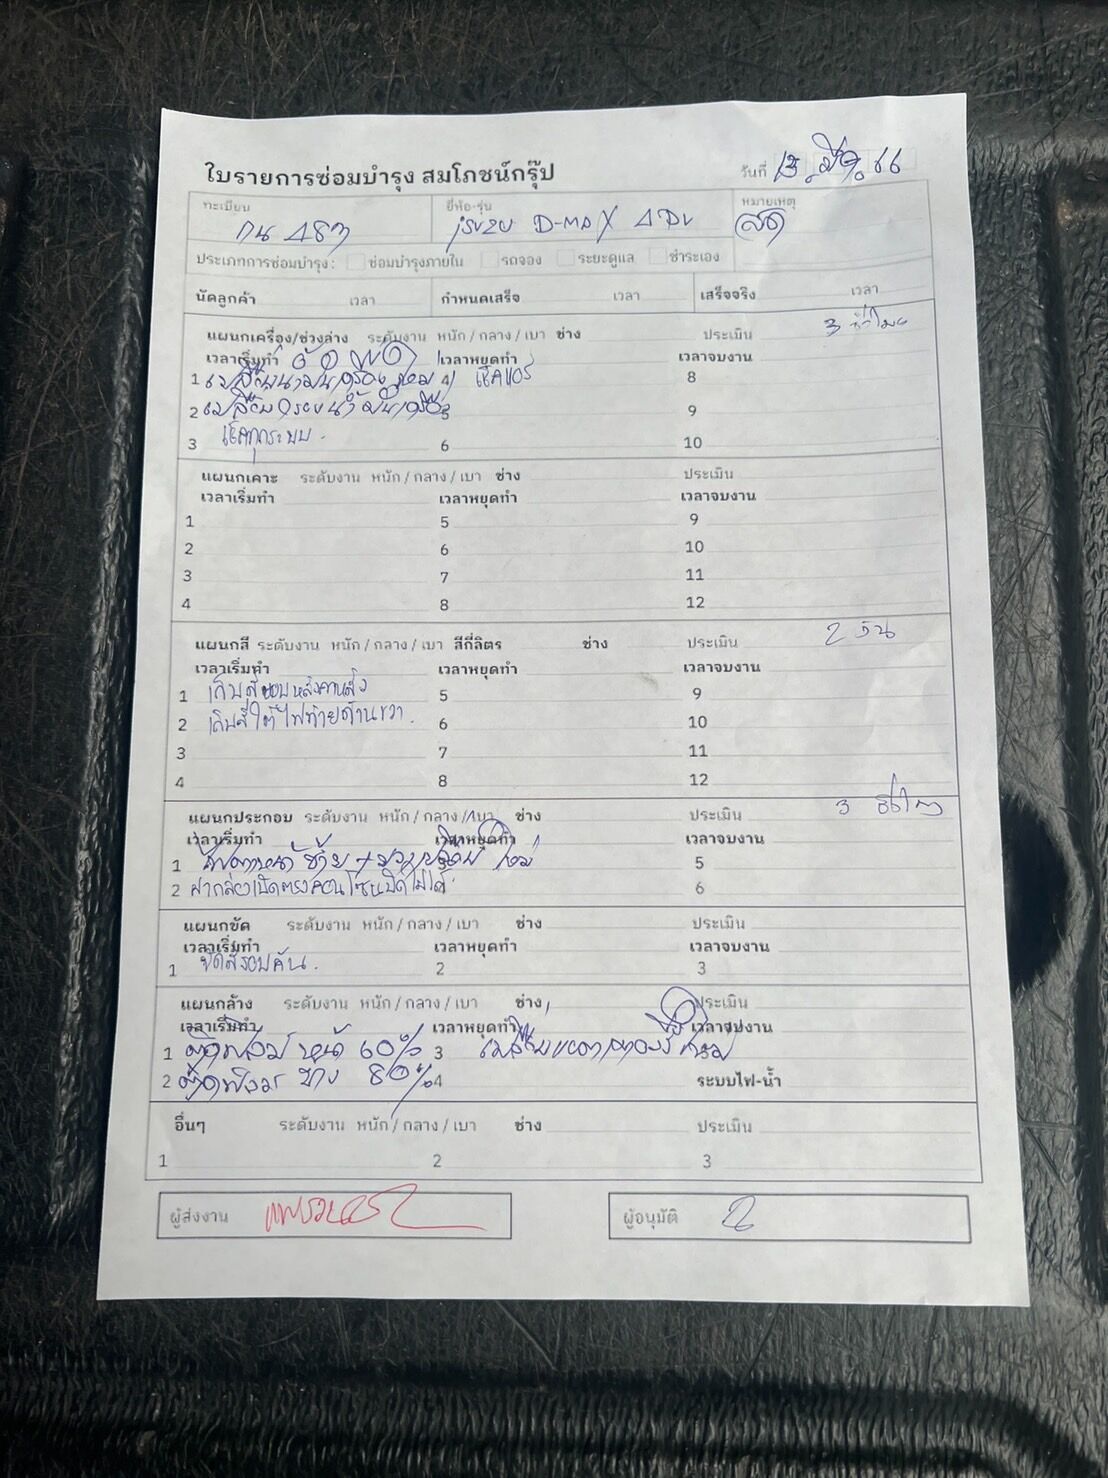 ใบรายการซ่อมบำรุง สมโภชน์กรุ๊ป
วันที่ 13 66
ทะเบียน ยี่ห้อ-รุ่น หมายเหตุ
กน 483 isuzu D-max 4DV สด
ประเภทการซ่อมบำรุง : ซ่อมบำรุงภายใน รถจอง ระยะดูแล ชำระเอง
นัดลูกค้า เวลา กำหนดเสร็จ เวลา เสร็จจริง เวลา
แผนกเครื่อง/ช่วงล่าง ระดับงาน หนัก / กลาง / เบา ช่าง ประเมิน 3 ชั่วโมง
เวลาเริ่มทำ เวลาหยุดทำ เวลาจบงาน
1 เปลี่ยนน้ำมันเครื่องใหม่ 4 เช็คแอร์ 8
2 เปลี่ยนกรองน้ำมันเครื่อง 5 9
3 เช็คทุกระบบ. 6 10
แผนกเคาะ ระดับงาน หนัก / กลาง / เบา ช่าง ประเมิน
เวลาเริ่มทำ เวลาหยุดทำ เวลาจบงาน
1 5 9
2 6 10
3 7 11
4 8 12
แผนกสี ระดับงาน หนัก / กลาง / เบา สีกี่ลิตร ช่าง ประเมิน 2 วัน
เวลาเริ่มทำ เวลาหยุดทำ เวลาจบงาน
1 เก็บสีขอบหลังคาหลัง 5 9
2 เก็บสีใต้ไฟท้ายด้านขวา. 6 10
3 7 11
4 8 12
แผนกประกอบ ระดับงาน หนัก / กลาง / เบา ช่าง ประเมิน 3 ชั่วโมง
เวลาเริ่มทำ เวลาหยุดทำ เวลาจบงาน
1 ไฟตาหน้าซ้าย ใหม่ 5
2 ฝากล่องเปิดตรงคอนโซนเปิดไม่ได้. 6
แผนกขัด ระดับงาน หนัก / กลาง / เบา ช่าง ประเมิน
เวลาเริ่มทำ เวลาหยุดทำ เวลาจบงาน
1 ขัดสีรอบคัน. 2 3
แผนกล้าง ระดับงาน หนัก / กลาง / เบา ช่าง ประเมิน
เวลาเริ่มทำ เวลาหยุดทำ เวลาจบงาน
1 ติดฟิล์ม หน้า 60% 3 เปลี่ยน ใหม่
2 ติดฟิล์ม ข้าง 80% 4 ระบบไฟ-น้ำ
อื่นๆ ระดับงาน หนัก / กลาง / เบา ช่าง ประเมิน
1 2 3
ผู้ส่งงาน ผู้อนุมัติ